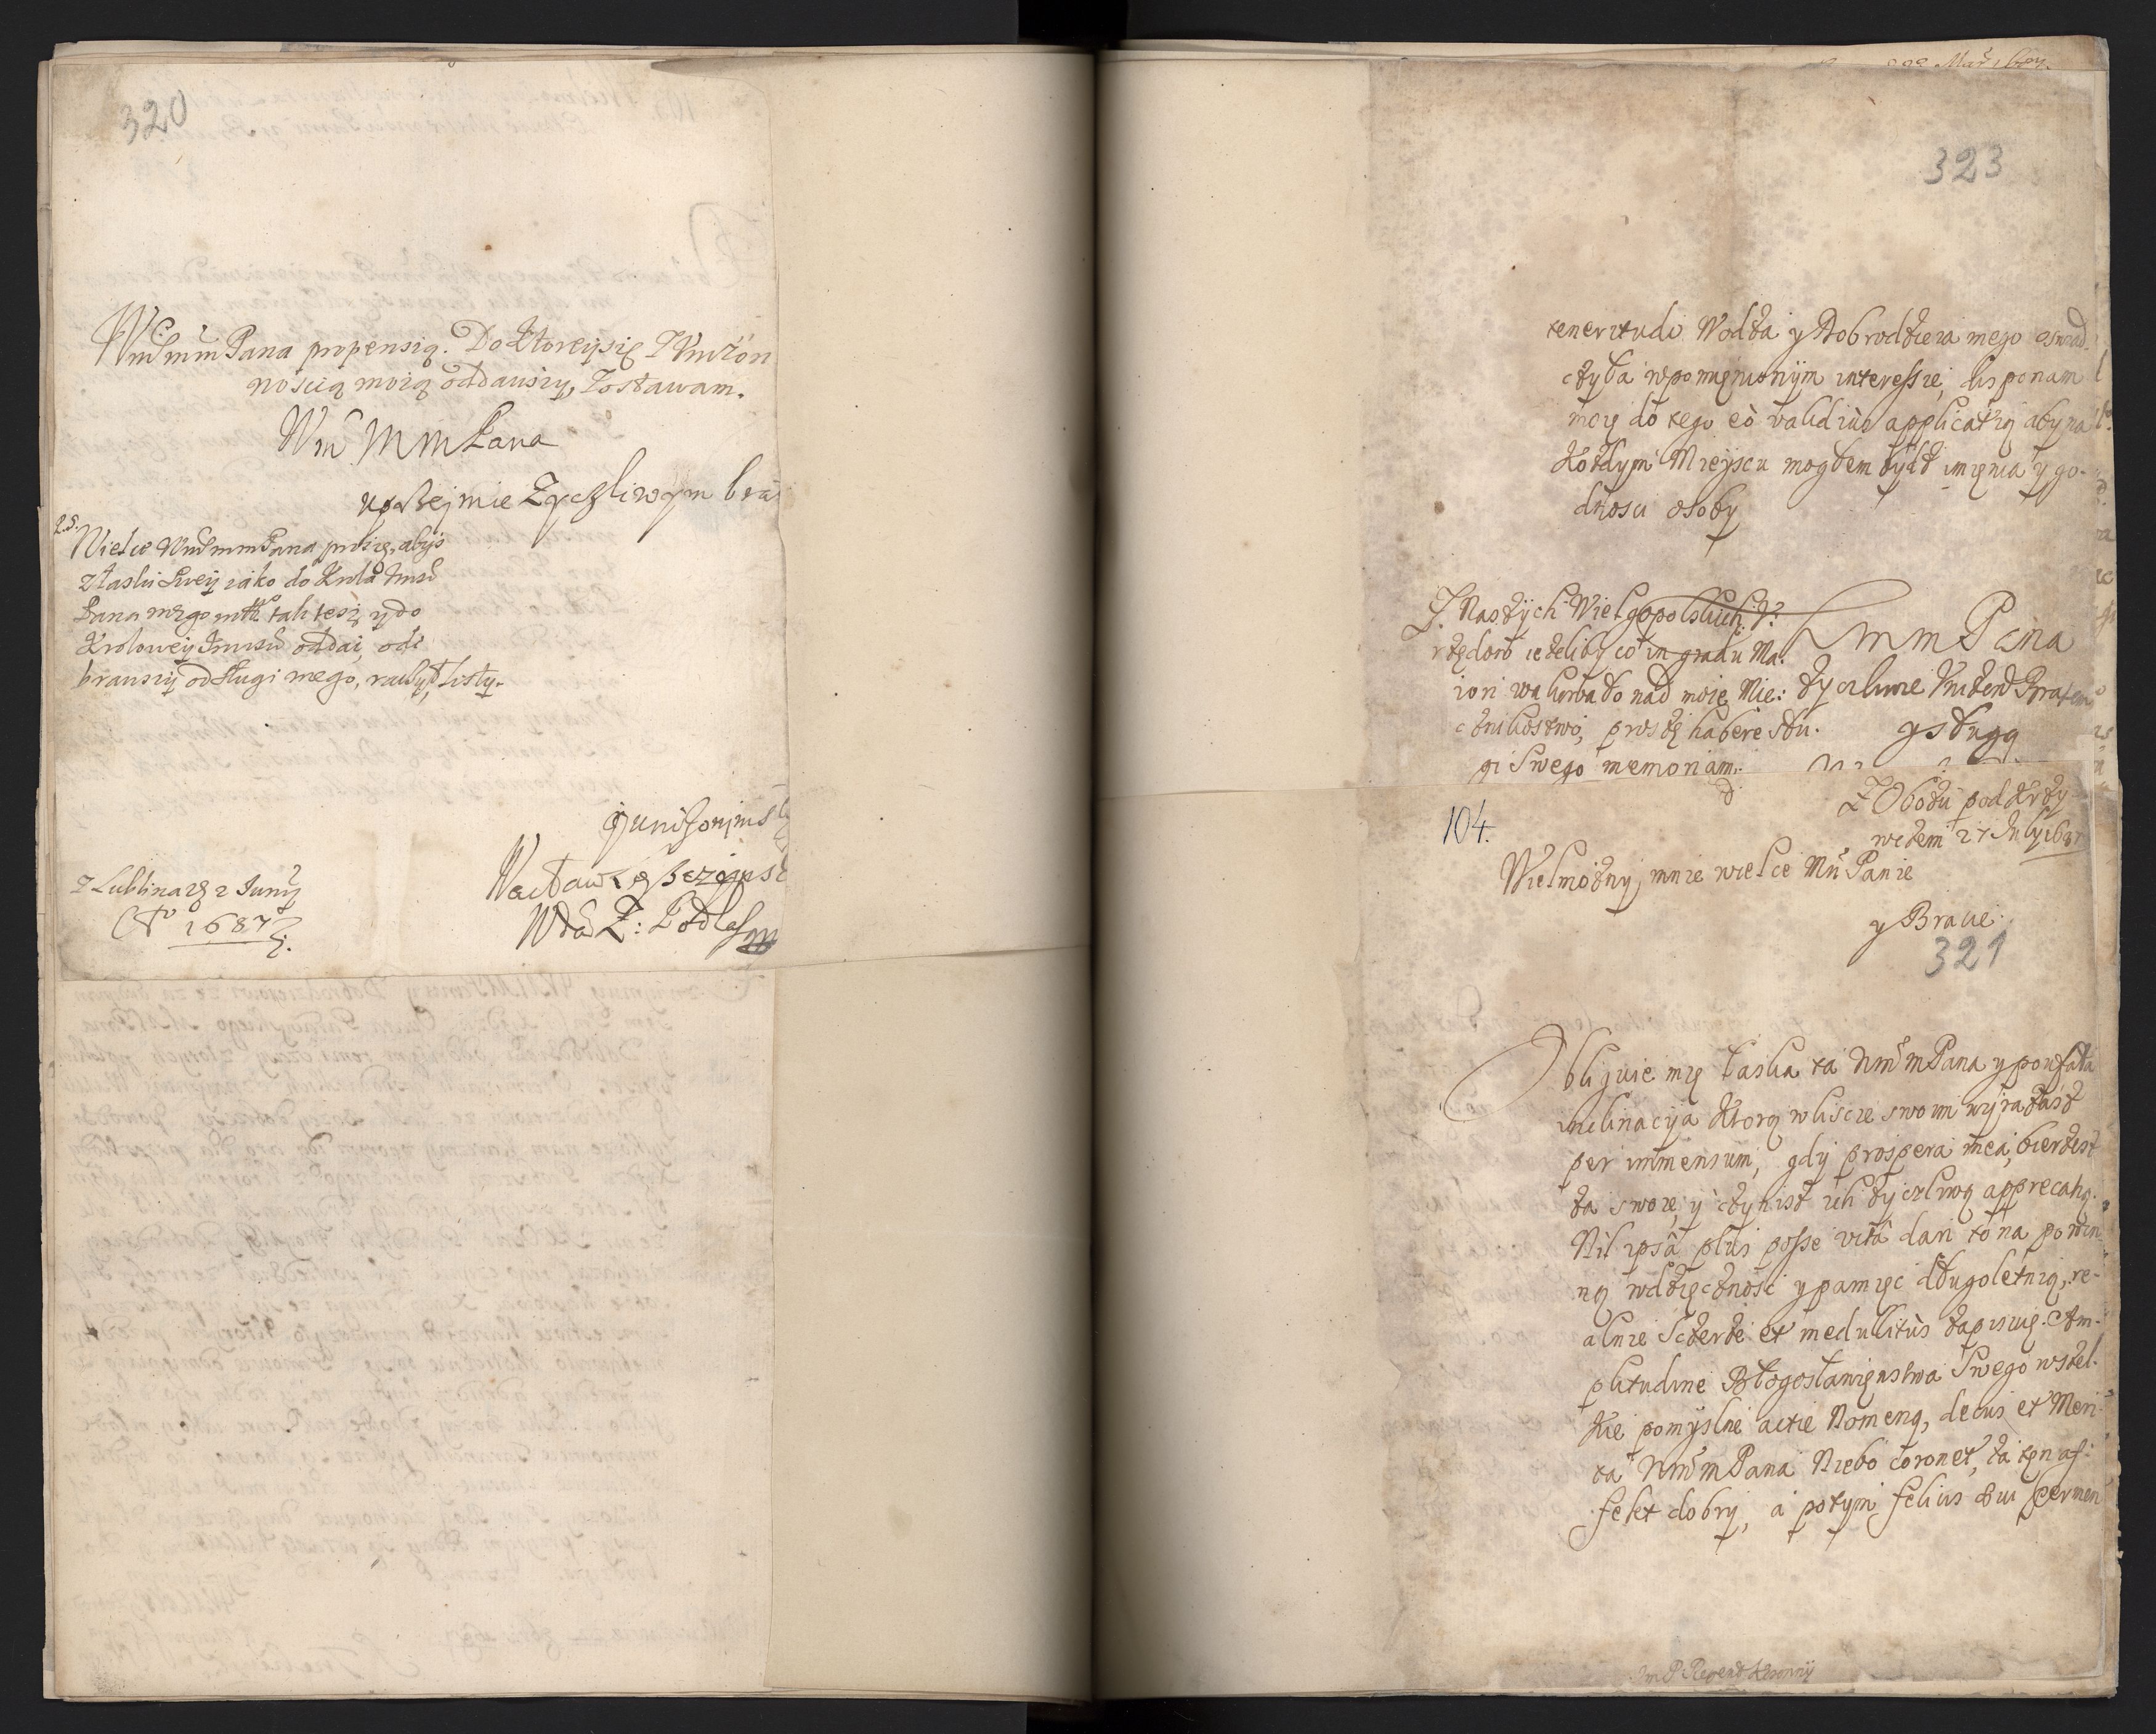 320
WmMm Pana propensią. Do Ktoreysię ZVnizon
nością moią oddawszy, Zostawam.
Wm MM Pana
uprzejmie Zyczliwym bra
P.S. Wielce WmMmPana proszę, abyś
z łaski Swey iako do Krola Jmsci
Pana mego młgo tak tesz y do
Krolowey Jeymsci oddai, ode
brawszy od sługi mego, raczył listy.
y unizonym sł
Wacław Leszczyns
Wda Z: Podlas
z Lublina 2 Juny
Ao 1687
323
teneritudi Wodza y Dobrodzieia mego oswiad
czyła wpomięnionym interessie, disponam
moię do tego eo validius applicatią aby na
Kozdym Mieyscu mogłem bydz imięnia y go-
dnosci osoby
Z Naszych Wielgopolskich
rzędow iezeliby co in gradu Ma:
iori wakowało nad moię Mie:
cznikostwo, proszę habere słu:
gi Swego memoriam.
Mm Pana
zyczliwie Vnizony Bratem
y sługą
104.
Z Obozu pod Krzy
wczem 27 July 1687
Wielmozny, mnie wielce Mu Panie
y Bracie
321
Obliguie mię łaska ta WmMPana y poufała
inclinacyja Ktorą w liscie swoim wyrazasz
per immensum, gdy prospera mea, bierzesz
za swoie, y czynisz ich zyczliwą apprecatią.
Nil ipsâ plus posse vitâ dari to na powin
ną wdzięcznosc y pamięc długoletnią, re-
alnie Sczerze et medullitus zapisuię. Am-
plitudine Błogosławięnstwa Swego wszel-
kie pomyslne actie Nomenq, decus et Meri-
ta WmMPana Niebo coronet, za ten af-
fekt dobry, a potym felius
Jm P Regent Koronny